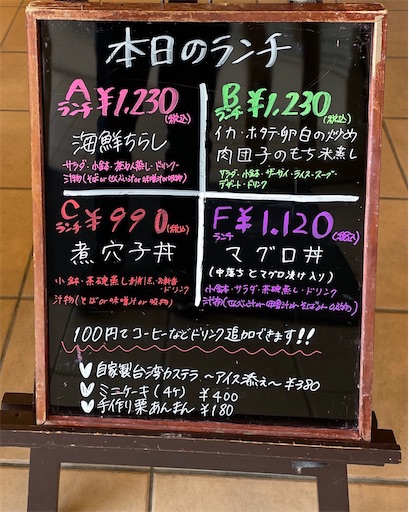 本日のランチ
A ランチ ¥1.230(税込)
海鮮ちらし
サラダ・小鉢・茶わん蒸し・ドリンク・
汁物(そばorせんべい汁or味噌汁or吸物)
B ランチ ¥1.230(税込)
イカ・ホタテ卵白の炒め
肉団子のもち米蒸し
サラダ・小鉢・ザーサイ・ライス・スープ・
デザート・ドリンク
C ランチ ¥990(税込)
煮穴子丼
小鉢・茶碗蒸し
・ドリンク
汁物(そばor味噌汁or吸物)
F ランチ ¥1.120(税込)
マグロ丼
(中落ちとマグロ漬け入り)
小鉢・サラダ・茶碗蒸し・ドリンク
汁物(せんべい汁or味噌汁orそばorの吸物)
100円でコーヒーなどドリンク追加できます!!
自家製台湾カステラ 〜アイス添え〜 ¥380
ミニケーキ(4ケ) ¥400
手作り栗あんまん ¥180